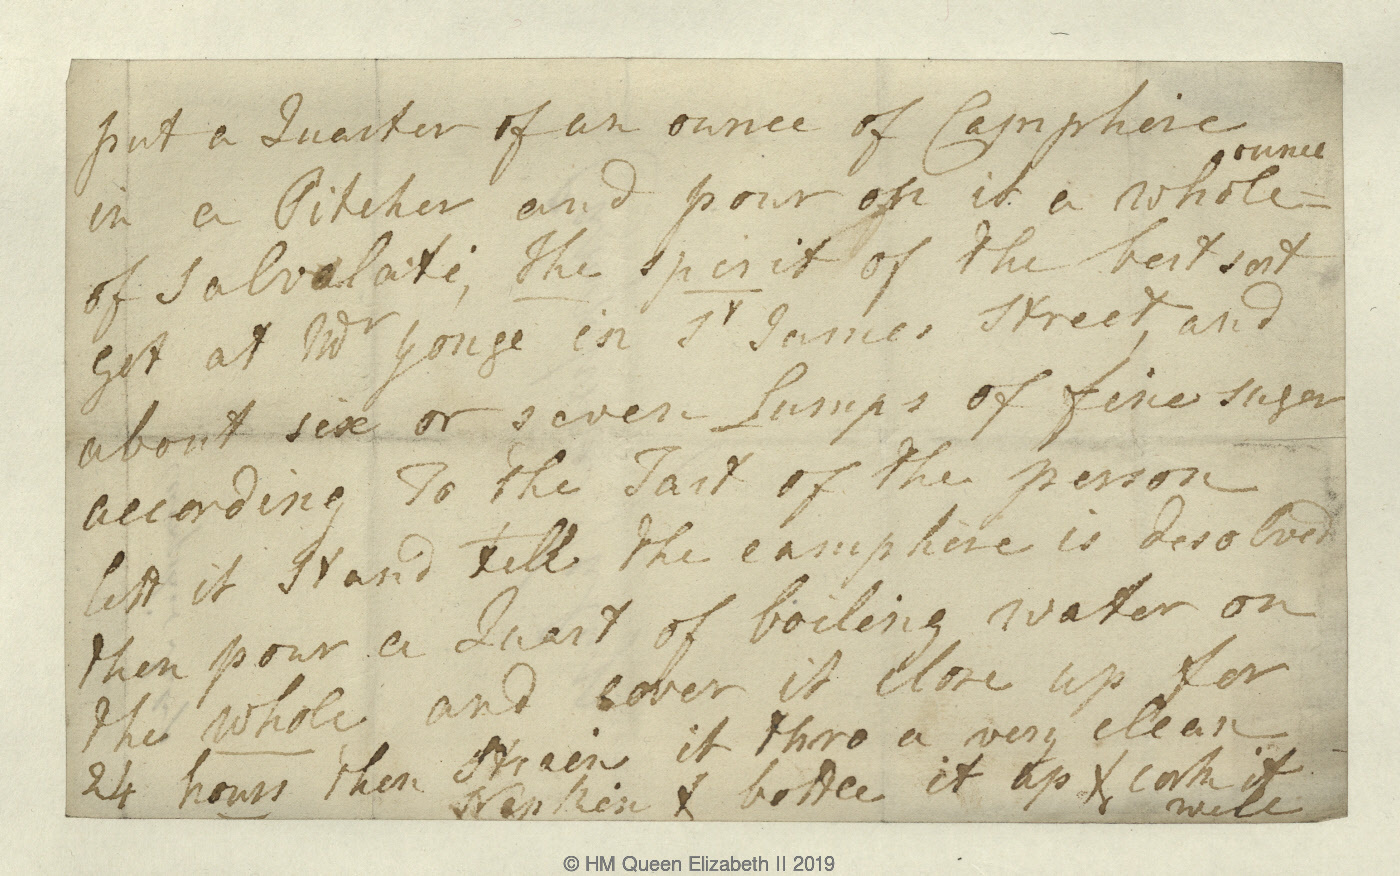 put a Quarter of an ounce of Camphire
in a Pitcher and pour on it a whole ounce
of Salvolati, the spirit of the best sort
get at Mr Yonge in St James Street, and
about six or seven Lumps of fine suger
according To the Tast of the person
lett it stand till the camphire is desolved
then pour a Quart of boiling water on
the whole and cover it close up for
24 hours then strain it thro a very clean
Napkin & bottle it up & cork it
well
© HM Queen Elizabeth II 2019